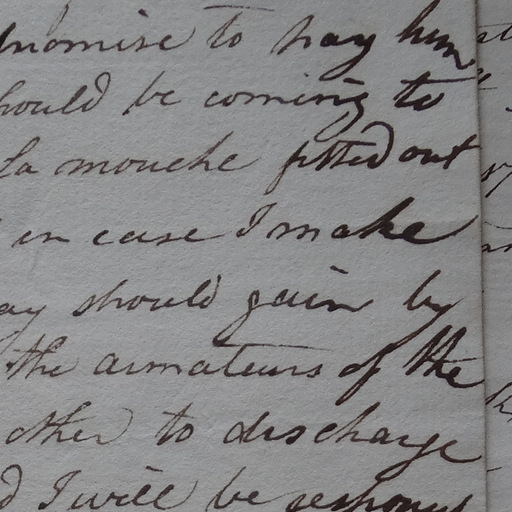 promise to pay him
should be coming to
La mouche fitted out
in case I make
ay should gain by
the armateurs of the
other to discharge
d I will be respons